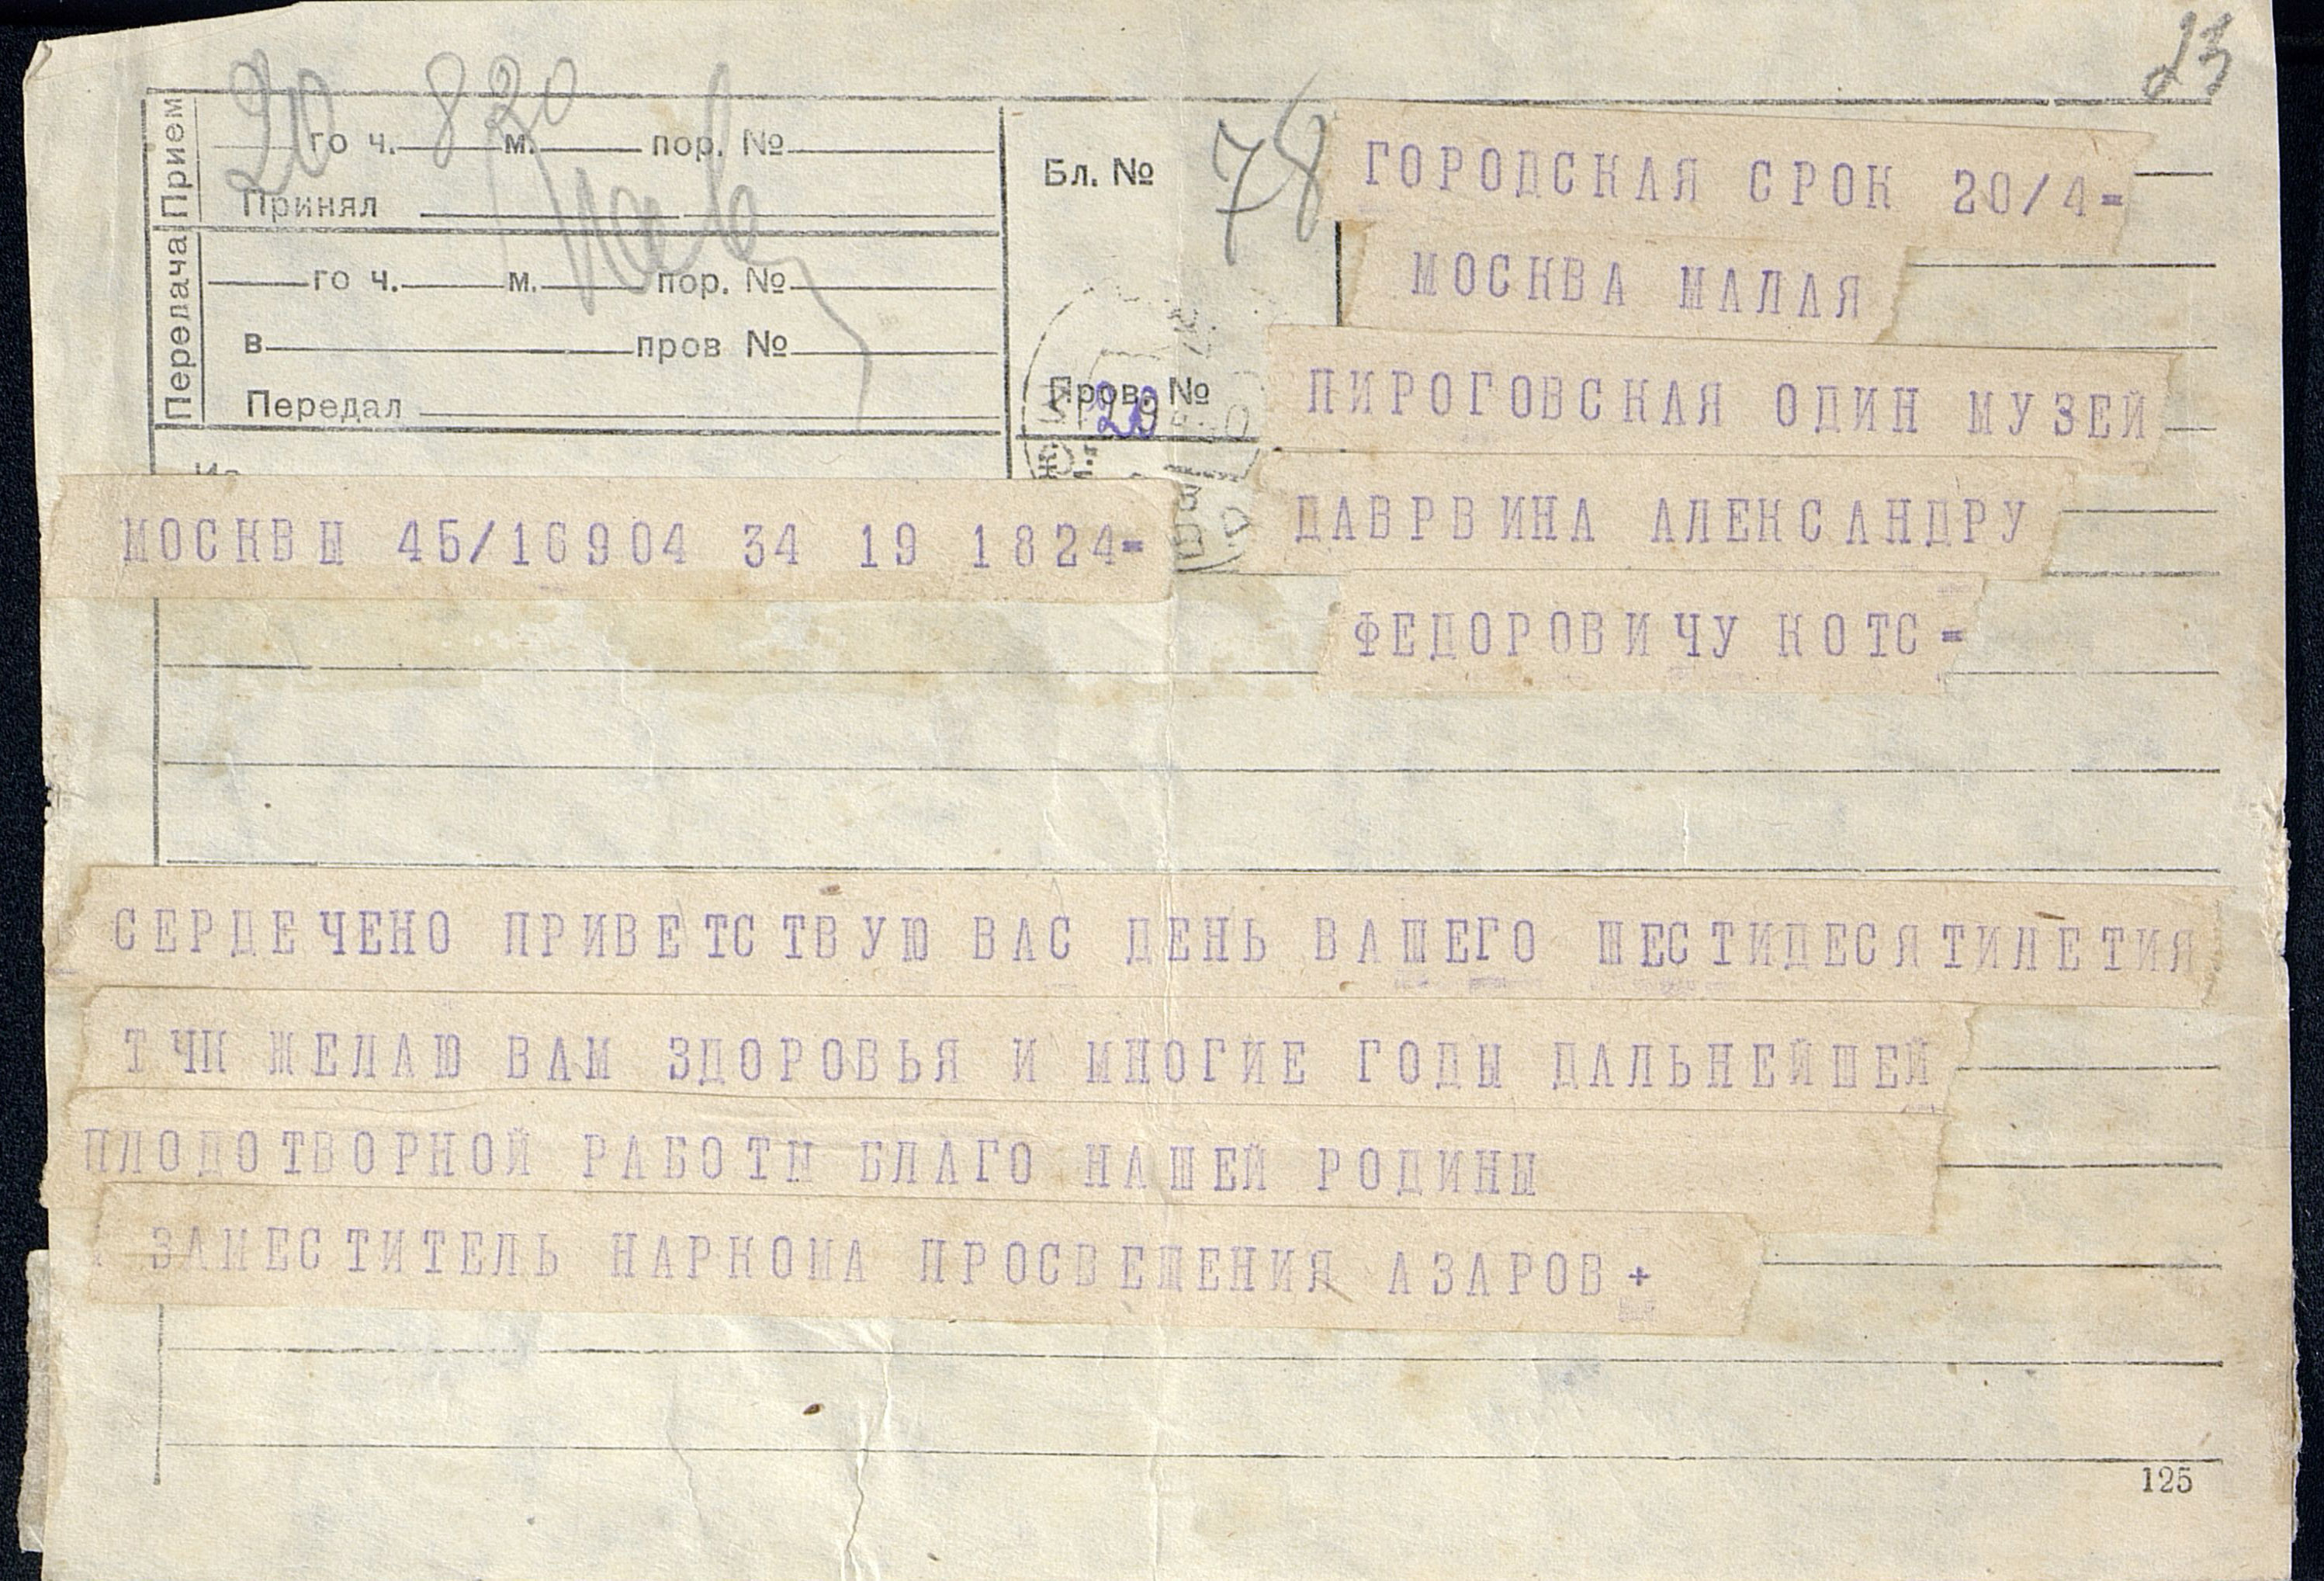 23
Прием
20 го ч. 8 м. 20 пор. №
Принял
Передача
го ч. м. пор. №
в пров №
Передал
Бл. № 78
Пров. №
20
ГОРОДСКАЯ СРОК 20/4=
МОСКВА МАЛАЯ
ПИРОГОВСКАЯ ОДИН МУЗЕЙ
ДАВРВИНА АЛЕКСАНДРУ
ФЕДОРОВИЧУ КОТС=
Из
МОСКВЫ 45/16904 34 19 1824=
СЕРДЕЧЕНО ПРИВЕТСТВУЮ ВАС ДЕНЬ ВАШЕГО ШЕСТИДЕСЯТИЛЕТИЯ
ТЧК ЖЕЛАЮ ВАМ ЗДОРОВЬЯ И МНОГИЕ ГОДЫ ДАЛЬНЕЙШЕЙ
ПЛОДОТВОРНОЙ РАБОТЫ БЛАГО НАШЕЙ РОДИНЫ
ЗАМЕСТИТЕЛЬ НАРКОМА ПРОСВЕЩЕНИЯ АЗАРОВ+
125